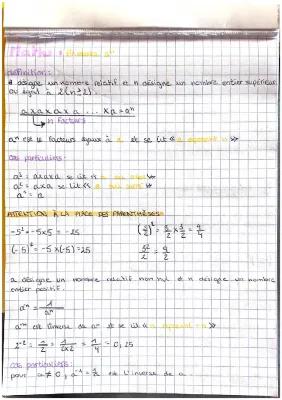 Maths : Puissances aⁿ
définition :
a désigne un nombre relatif et n désigne un nombre entier supérieur
ou égal à 2 (n≥2).
a x a x a x a ... x a = aⁿ
n facteurs
aⁿ est le facteurs égaux à a et se lit « a exposant n »
cas particuliers :
a³ = a x a x a se lit « a au cube »
a² = a x a se lit « a au carré »
a¹ = a
ATTENTION À LA PLACE DES PARENTHÈSES
-5² = -5x5 = -25
(-5)² = -5 x(-5) = 25
a désigne un nombre relatif non nul et n désigne un nombre
entier positif.
a⁻ⁿ est l'inverse de aⁿ et se lit « a exposant -n »
2⁻² = 1/2² = 1/2x2 = 1/4 = 0,25
cas particuliers :
pour a≠0, a⁻¹ = 1/a est l'inverse de a.